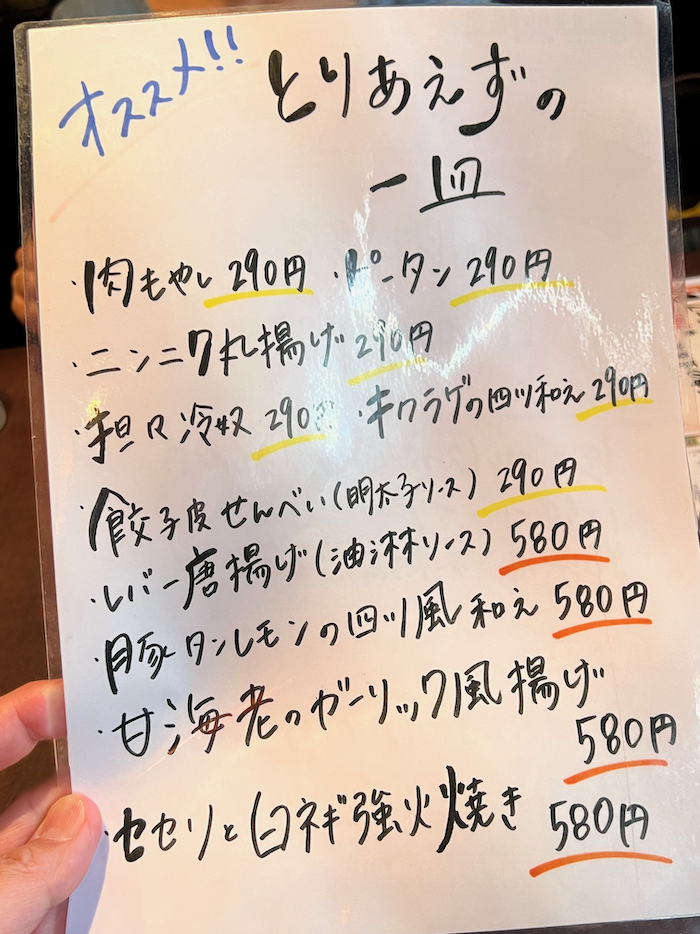 オススメ!! とりあえずの
一皿
・肉もやし 290円 ・ピータン 290円
・ニンニク丸揚げ 290円
・担々冷奴 290円 ・キクラゲの四川和え 290円
・餃子皮せんべい(明太子ソース) 290円
・レバー唐揚げ(油淋ソース) 580円
・豚タンレモンの四川風和え 580円
・甘海老のガーリック風揚げ
580円
・セセリと白ネギ強火焼き 580円